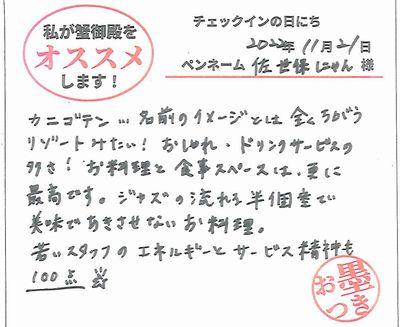 私が蟹御殿を
オススメ
します！
チェックインの日にち
2022年11月21日
ペンネーム 佐世保にゃん 様
カニゴテン…名前のイメージとは全くちがう
リゾートみたい！おしゃれ・ドリンクサービスの
多さ！お料理と食事スペースは、更に
最高です。ジャズの流れる半個室で
美味であきさせないお料理。
若いスタッフのエネルギーとサービス精神も
100点
お墨つき